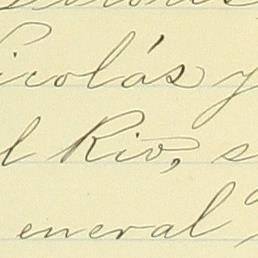 icolás y
l Rio, s
eneral